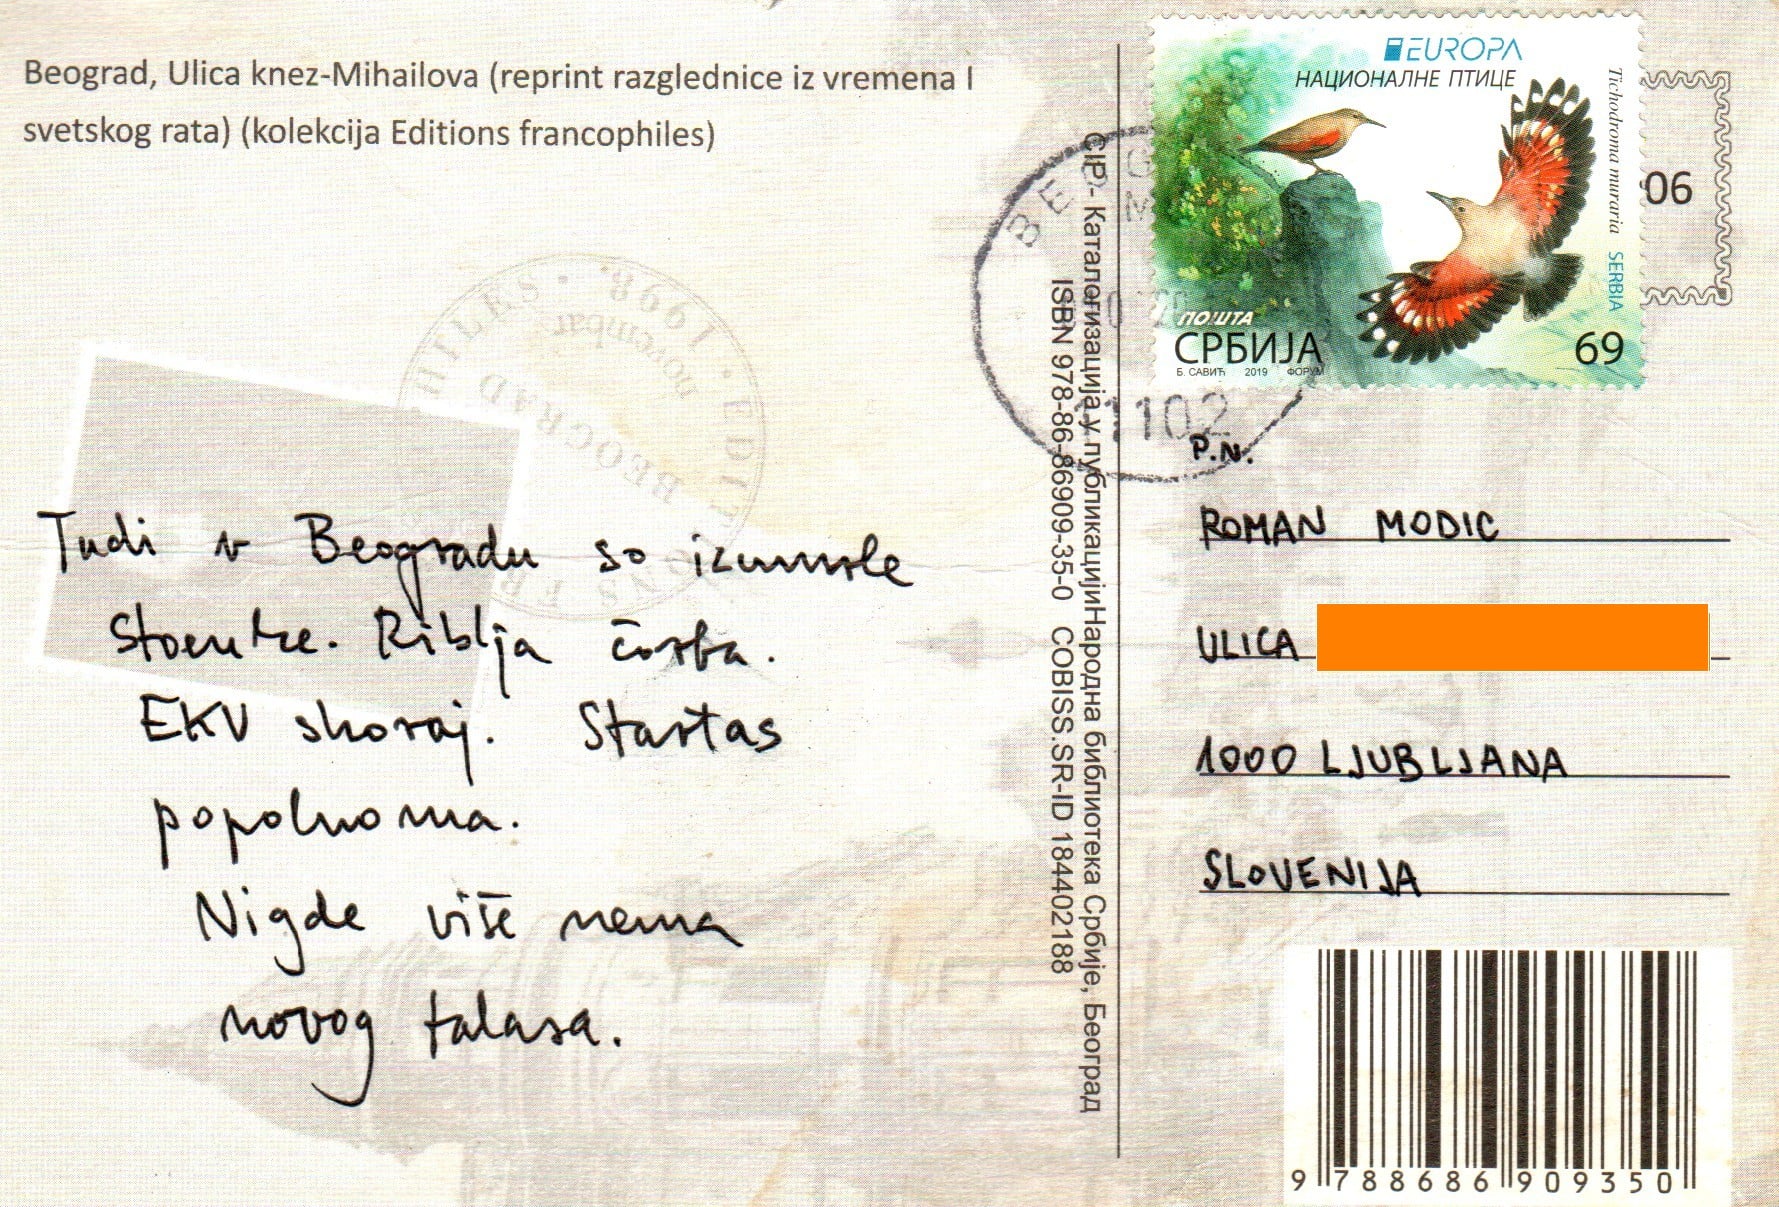 Beograd, Ulica knez-Mihailova (reprint razglednice iz vremena I
svetskog rata) (kolekcija Editions francophiles)
Tudi v Beogradu so izumrle
Stoenke. Riblja čorba.
EKV skoraj. Šarlo
popolnoma.
Nigde više nema
novog talasa.
CIP - Каталогизација у публикацијиНародна библиотека Србије, Београд
ISBN 978-86-86909-35-0 COBISS.SR-ID 184402188
EUROPA
НАЦИОНАЛНЕ ПТИЦЕ
Tichodroma muraria SERBIA
ПОШТА
СРБИЈА
69
Б. САВИЋ 2019 ФОРУМ
06
11102
1998.
novembar
BEOGRAD
P.N.
ROMAN MODIC
ULICA
1000 LJUBLJANA
SLOVENIJA
9 788686 909350